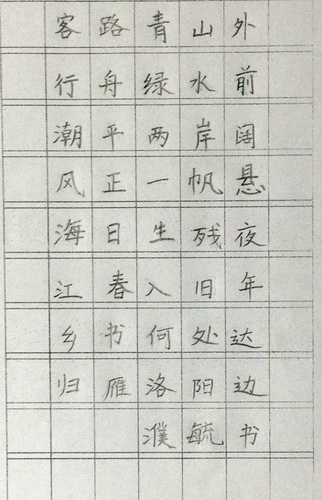 客路青山外
行舟绿水前
潮平两岸阔
风正一帆悬
海日生残夜
江春入旧年
乡书何处达
归雁洛阳边
濮毓书